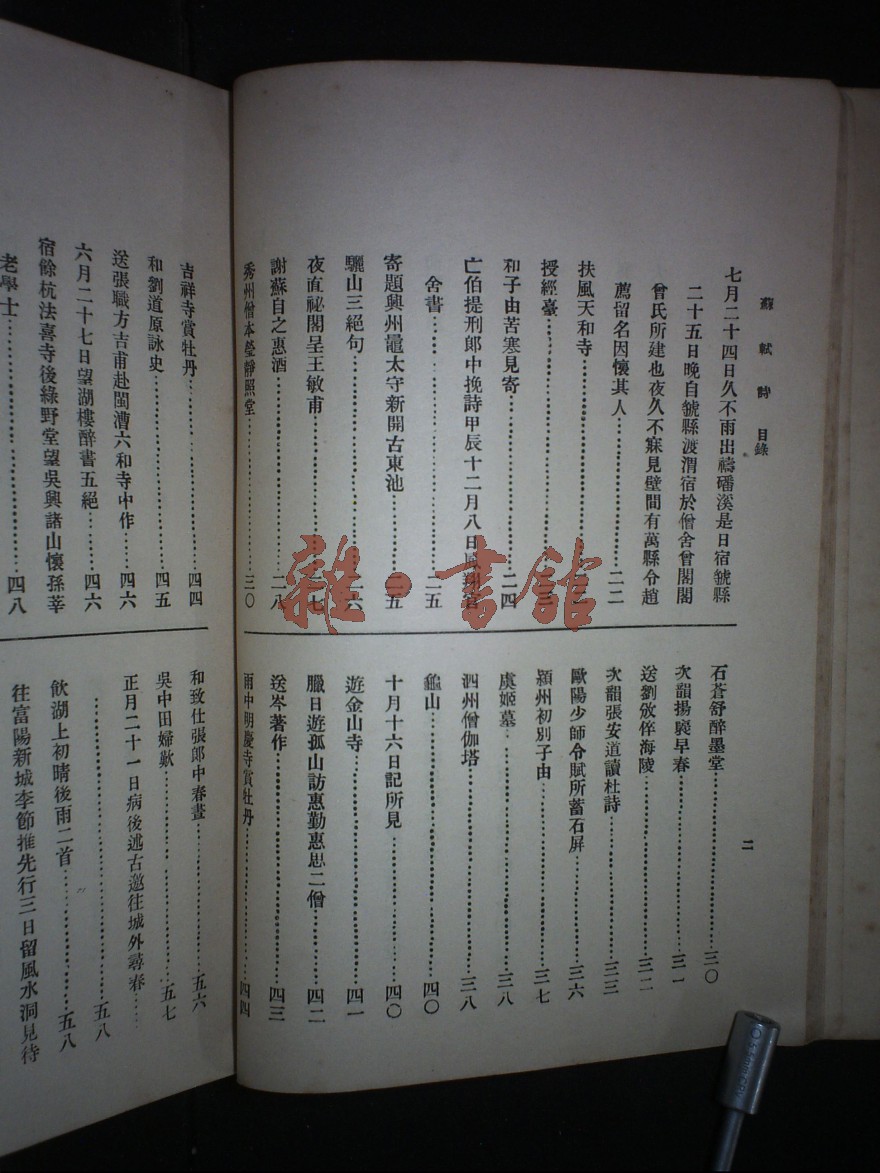 蘇軾詩 目錄
二
七月二十四日久不雨出禱磻溪是日宿虢縣
二十五日晚自虢縣渡渭宿於僧舍曾閣閣
曾氏所建也夜久不寐見壁間有萬縣令趙
薦留名因懷其人…………二二
扶風天和寺…………
授經臺…………
和子由苦寒見寄…………二四
亡伯提刑郎中挽詩甲辰十二月八日鳳翔官
舍書…………二五
寄題興州鼂太守新開古東池…………
驪山三絕句…………二六
夜直祕閣呈王敏甫…………
謝蘇自之惠酒…………二八
秀州僧本瑩靜照堂…………三〇
石蒼舒醉墨堂…………三〇
次韻揚褒早春…………三一
送劉攽倅海陵…………三二
次韻張安道讀杜詩…………三三
歐陽少師令賦所蓄石屏…………三六
潁州初別子由…………三七
虞姬墓…………三八
泗州僧伽塔…………三八
龜山…………四〇
十月十六日記所見…………四〇
遊金山寺…………四一
臘日遊孤山訪惠勤惠思二僧…………四二
送岑著作…………四三
雨中明慶寺賞牡丹…………四四
吉祥寺賞牡丹…………四四
和劉道原詠史…………四五
送張職方吉甫赴閩漕六和寺中作…………四六
六月二十七日望湖樓醉書五絕…………四六
宿餘杭法喜寺後綠野堂望吳興諸山懷孫莘
老學士…………四八
和致仕張郎中春晝…………五六
吳中田婦歎…………五七
正月二十一日病後述古邀往城外尋春……
…………五八
飲湖上初晴後雨二首…………五八
往富陽新城李節推先行三日留風水洞見待
雜·書館